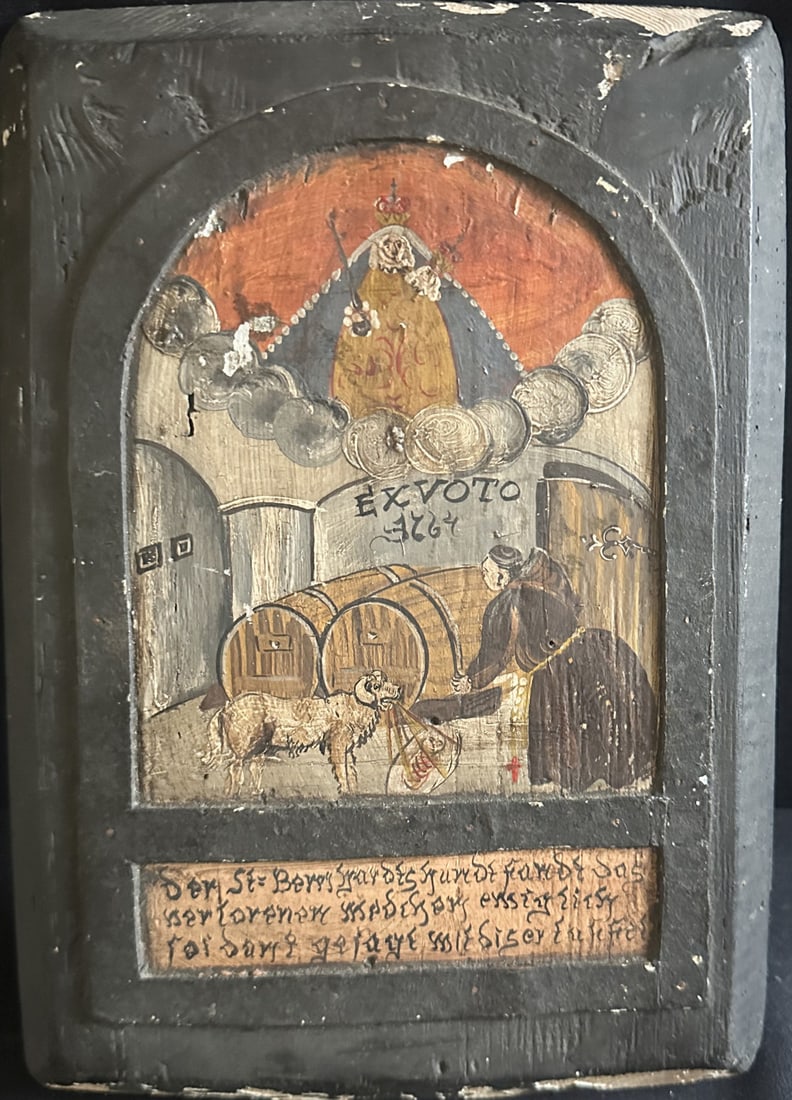 EX VOTO
1764
der St= Bernhardtshundt fandt das
verlorenen medchen ewiglich
sei dank gesagt mit diser taffel